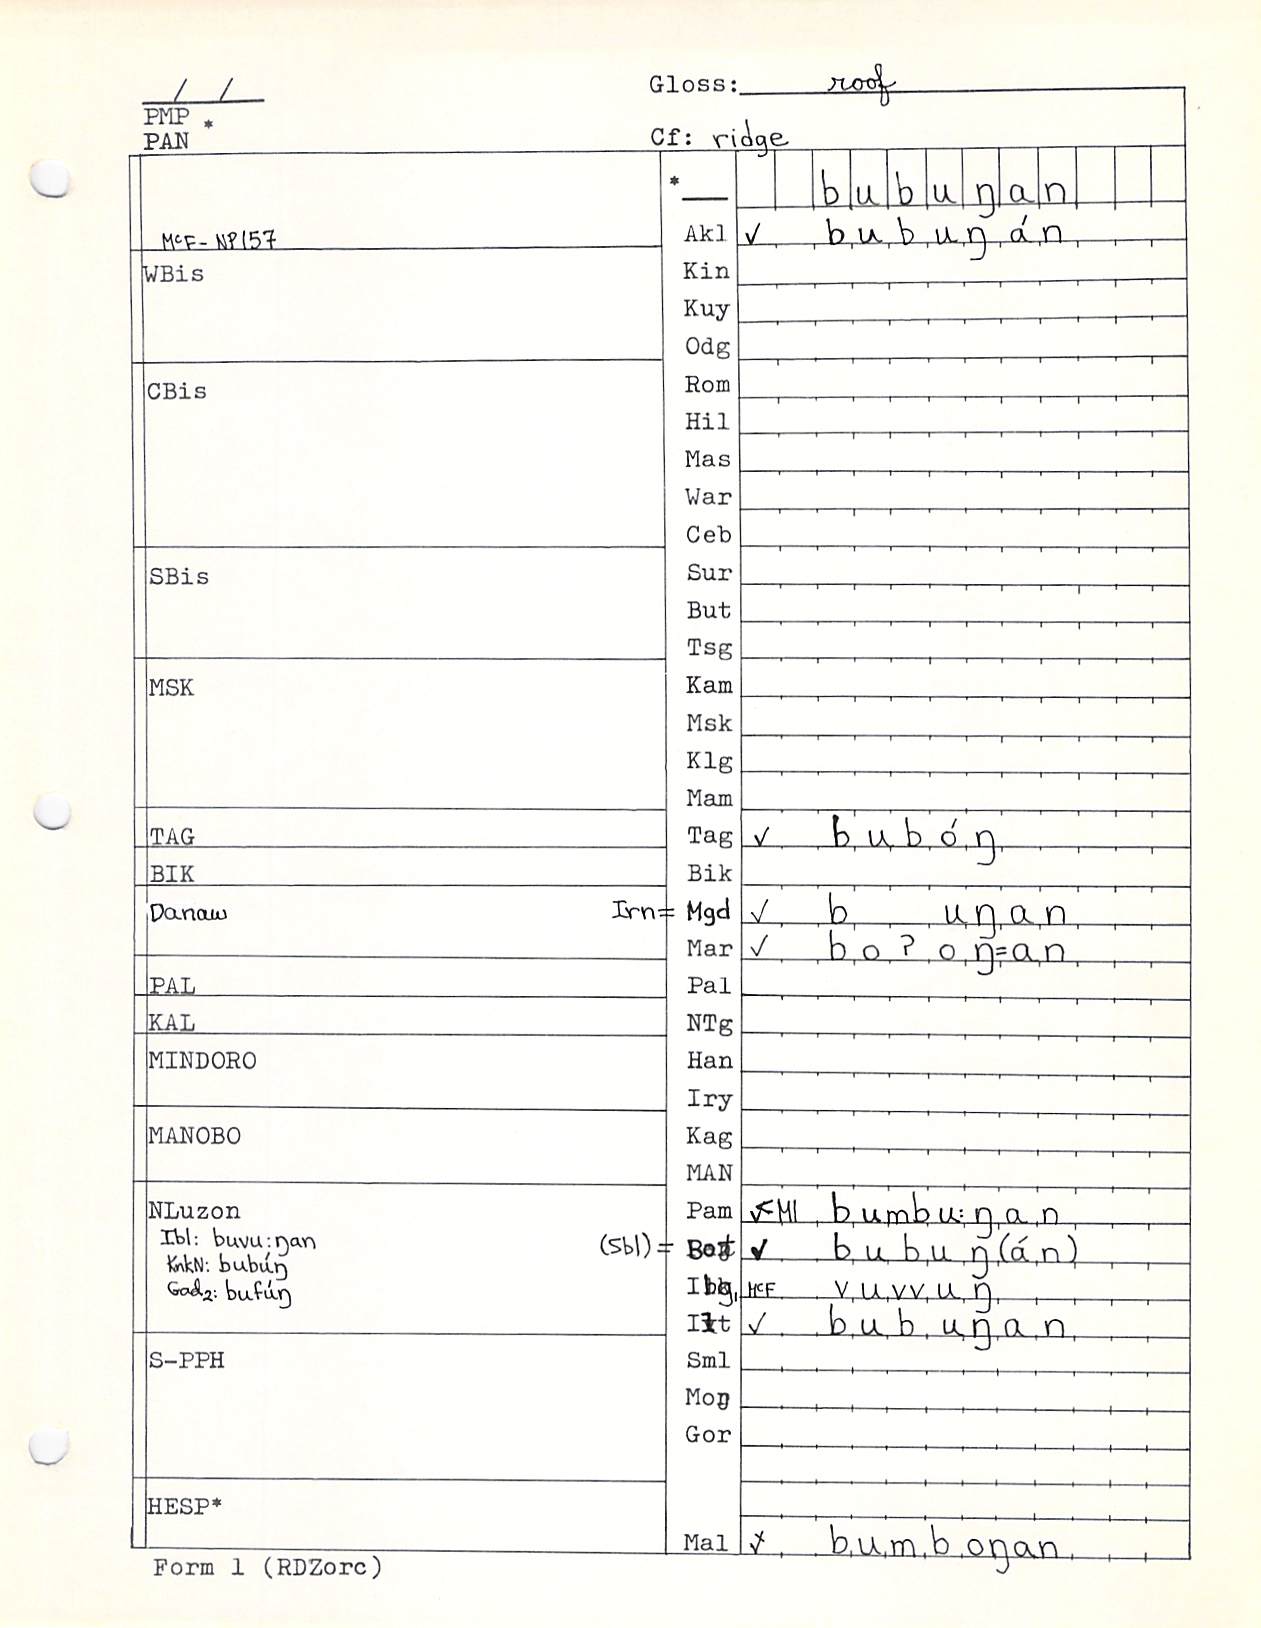 / /
Gloss: roof
PMP
PAN *
Cf: ridge
* bubuŋan
McF-NP157
Akl ✓ bubuŋán
WBis
Kin
Kuy
Odg
CBis
Rom
Hil
Mas
War
Ceb
SBis
Sur
But
Tsg
MSK
Kam
Msk
Klg
Mam
TAG
Tag ✓ bubóŋ
BIK
Bik
Danaw
Irn= Mgd ✓ b uŋan
Mar ✓ bo?oŋ=an
PAL
Pal
KAL
NTg
MINDORO
Han
Iry
MANOBO
Kag
MAN
NLuzon
Pam ✓<Ml bumbu:ŋan
Ibl: buvu:ŋan
(Sbl)= ✓ bubuŋ(án)
KnkN: bubúŋ
Gad2: bufúŋ
Ibg, McF vuvvuŋ
✓ bubuŋan
S-PPH
Sml
Moŋ
Gor
HESP*
Mal bumboŋan
Form 1 (RDZorc)